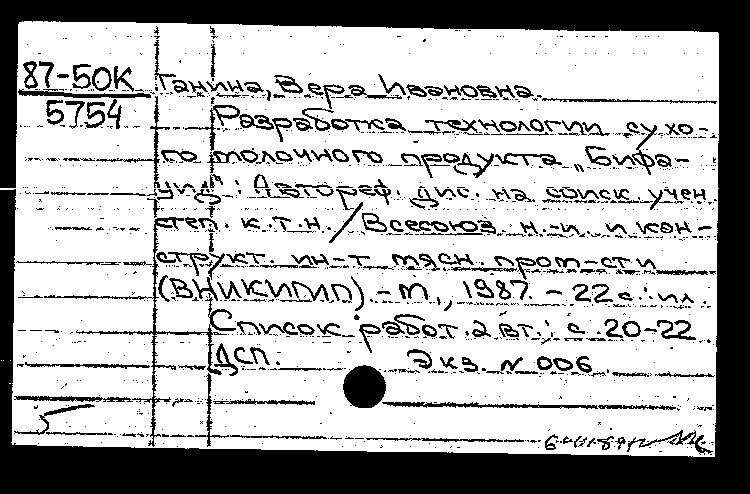 87-50К Ганина, Вера Ивановна.
5754 Разработка технологии сухо-
го молочного продукта „Бифа-
уид": Автореф. дис. на соиск учен
степ. к.т.н. / Всесоюз н.-и. и кон-
структ. ин-т мясн. пром-сти
(ВНИКИМП). - М., 1987. - 22 с.: ил.
Список работ. авт.: с. 20-22
ДСП. Экз. № 006
5